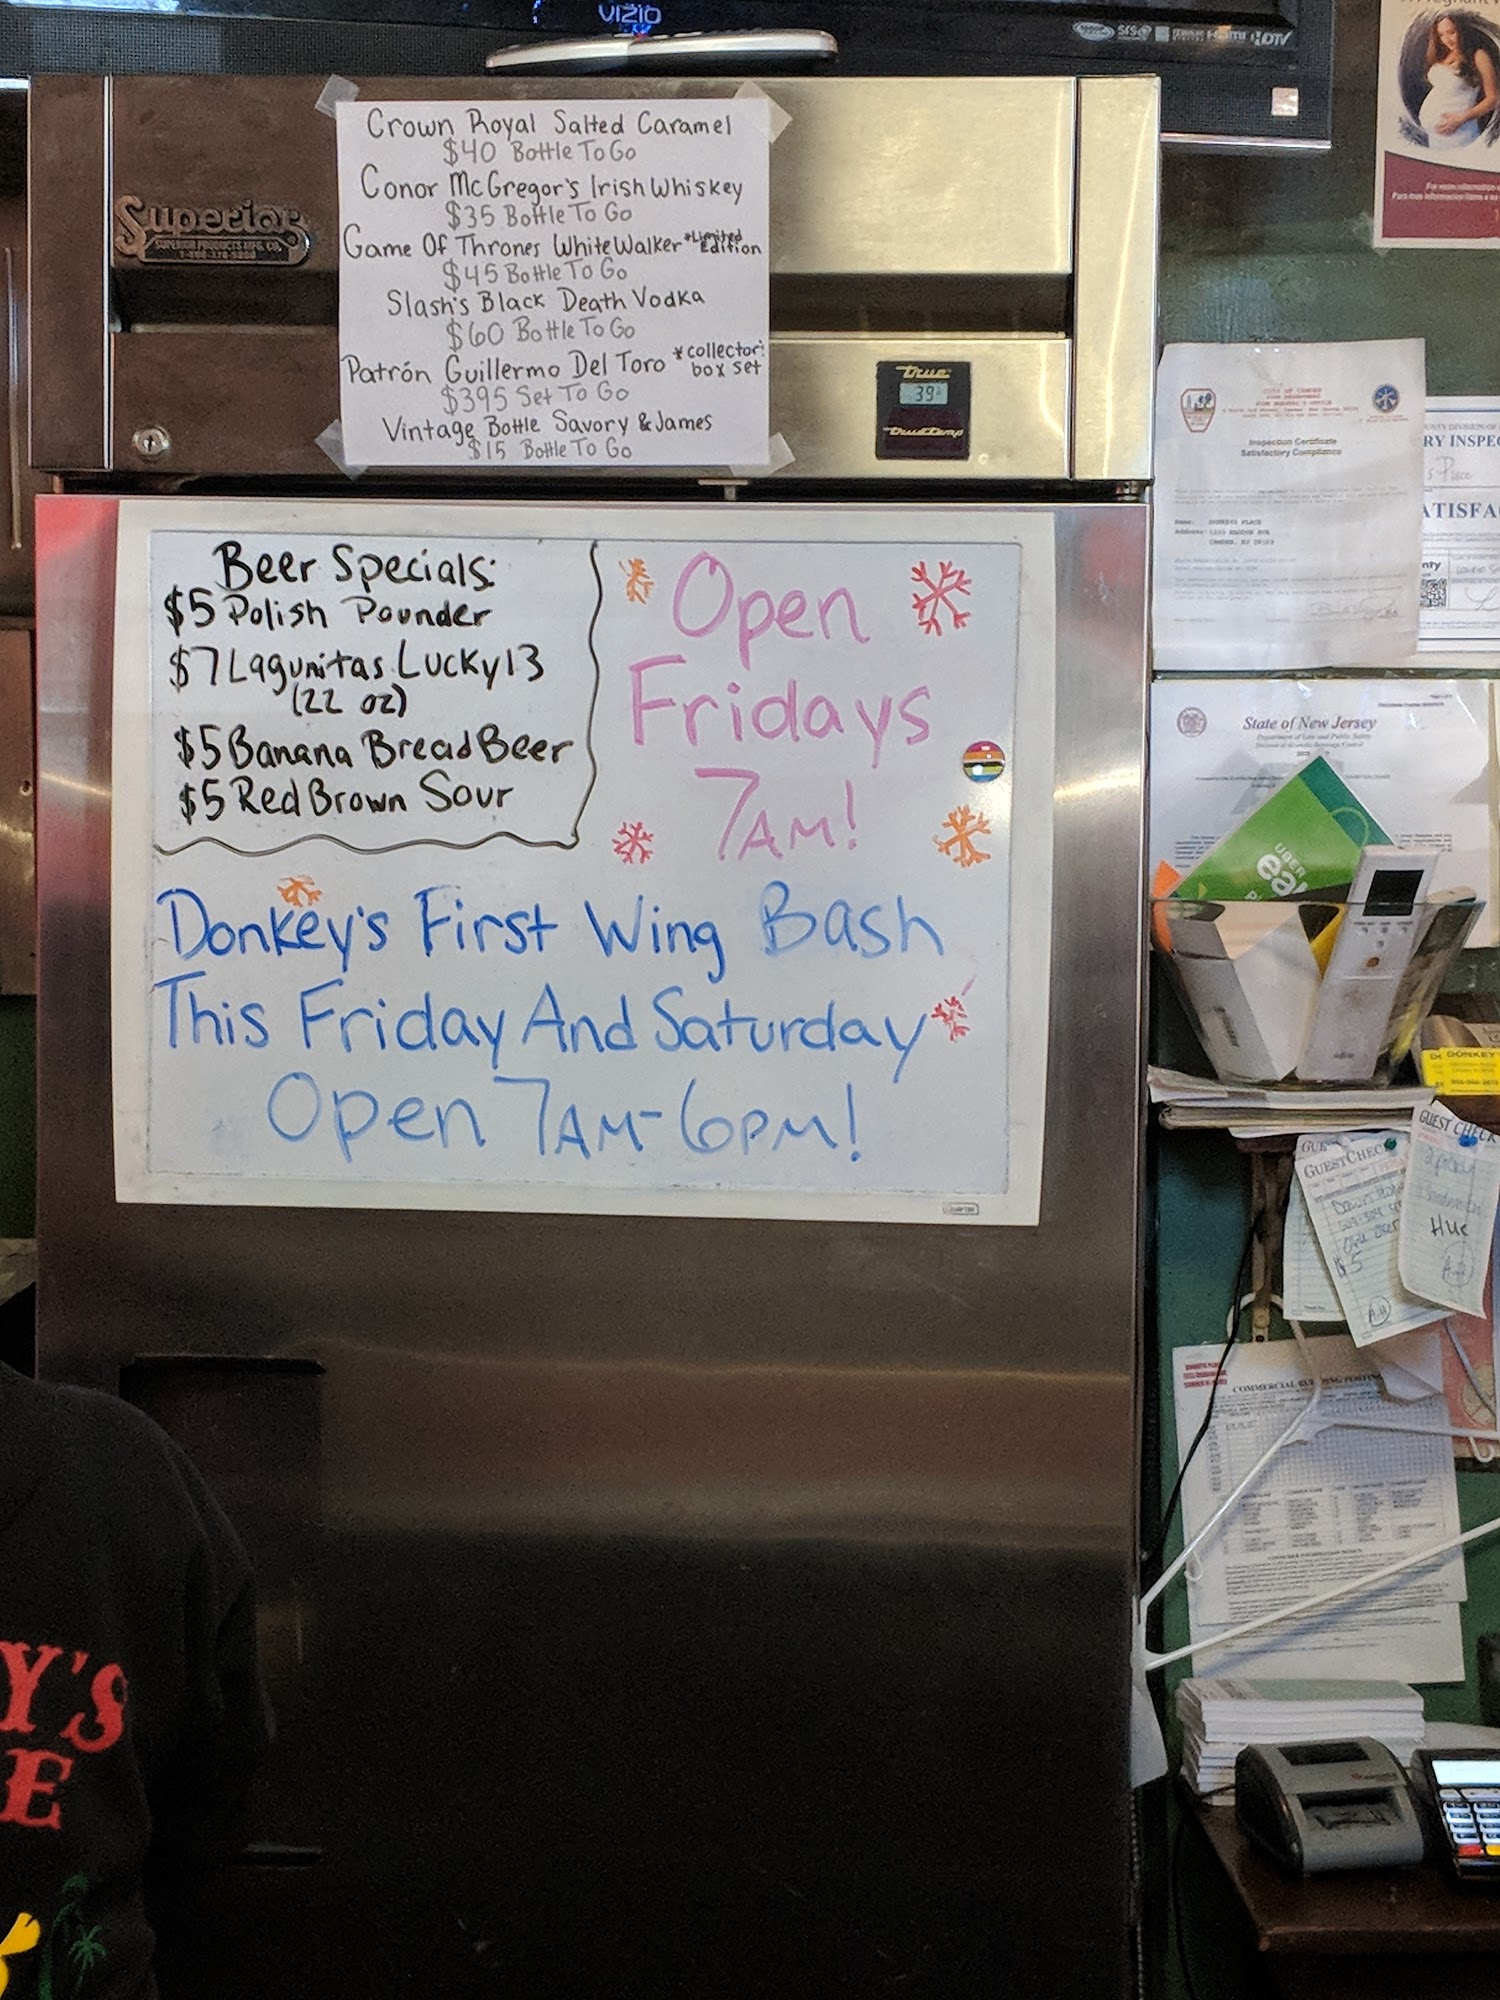 VIZIO
HDTV
Crown Royal Salted Caramel
$40 Bottle To Go
Conor McGregor's Irish Whiskey
$35 Bottle To Go
Game Of Thrones White Walker *Limited Edition
$45 Bottle To Go
Slash's Black Death Vodka
$60 Bottle To Go
Patrón Guillermo Del Toro *collector's box set
$395 Set To Go
Vintage Bottle Savory & James
$15 Bottle To Go
Superior
SUPERIOR PRODUCTS MFG. CO.
True
39
Beer Specials:
$5 Polish Pounder
$7 Lagunitas Lucky 13
(22 oz)
$5 Banana Bread Beer
$5 Red Brown Sour
Open
Fridays
7AM!
Donkey's First Wing Bash
This Friday And Saturday
Open 7AM-6PM!
Inspection Certificate
Satisfactory Compliance
Name: DONKEYS PLACE
RY INSPE
ATISFA
State of New Jersey
Department of Law and Public Safety
UBER
ea
DONKEY'
GUEST CHECK
GUESTCHEC
$5
Hue
Y'S
E